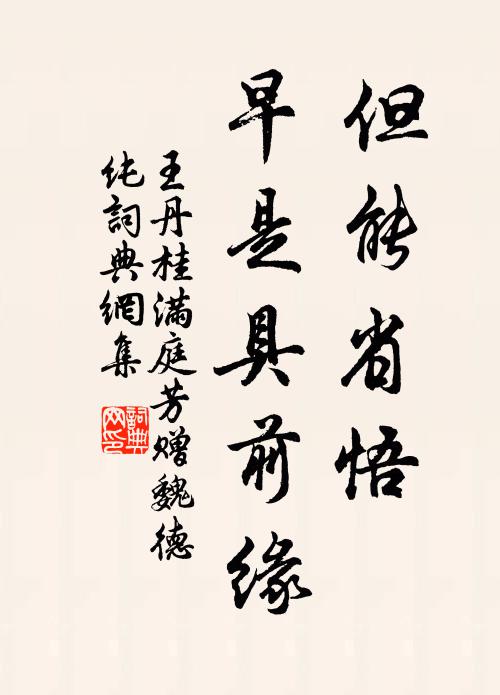 但能省悟
早是具前緣
王丹桂滿庭芳赠魏德
纯詞典網集
詞典
网印